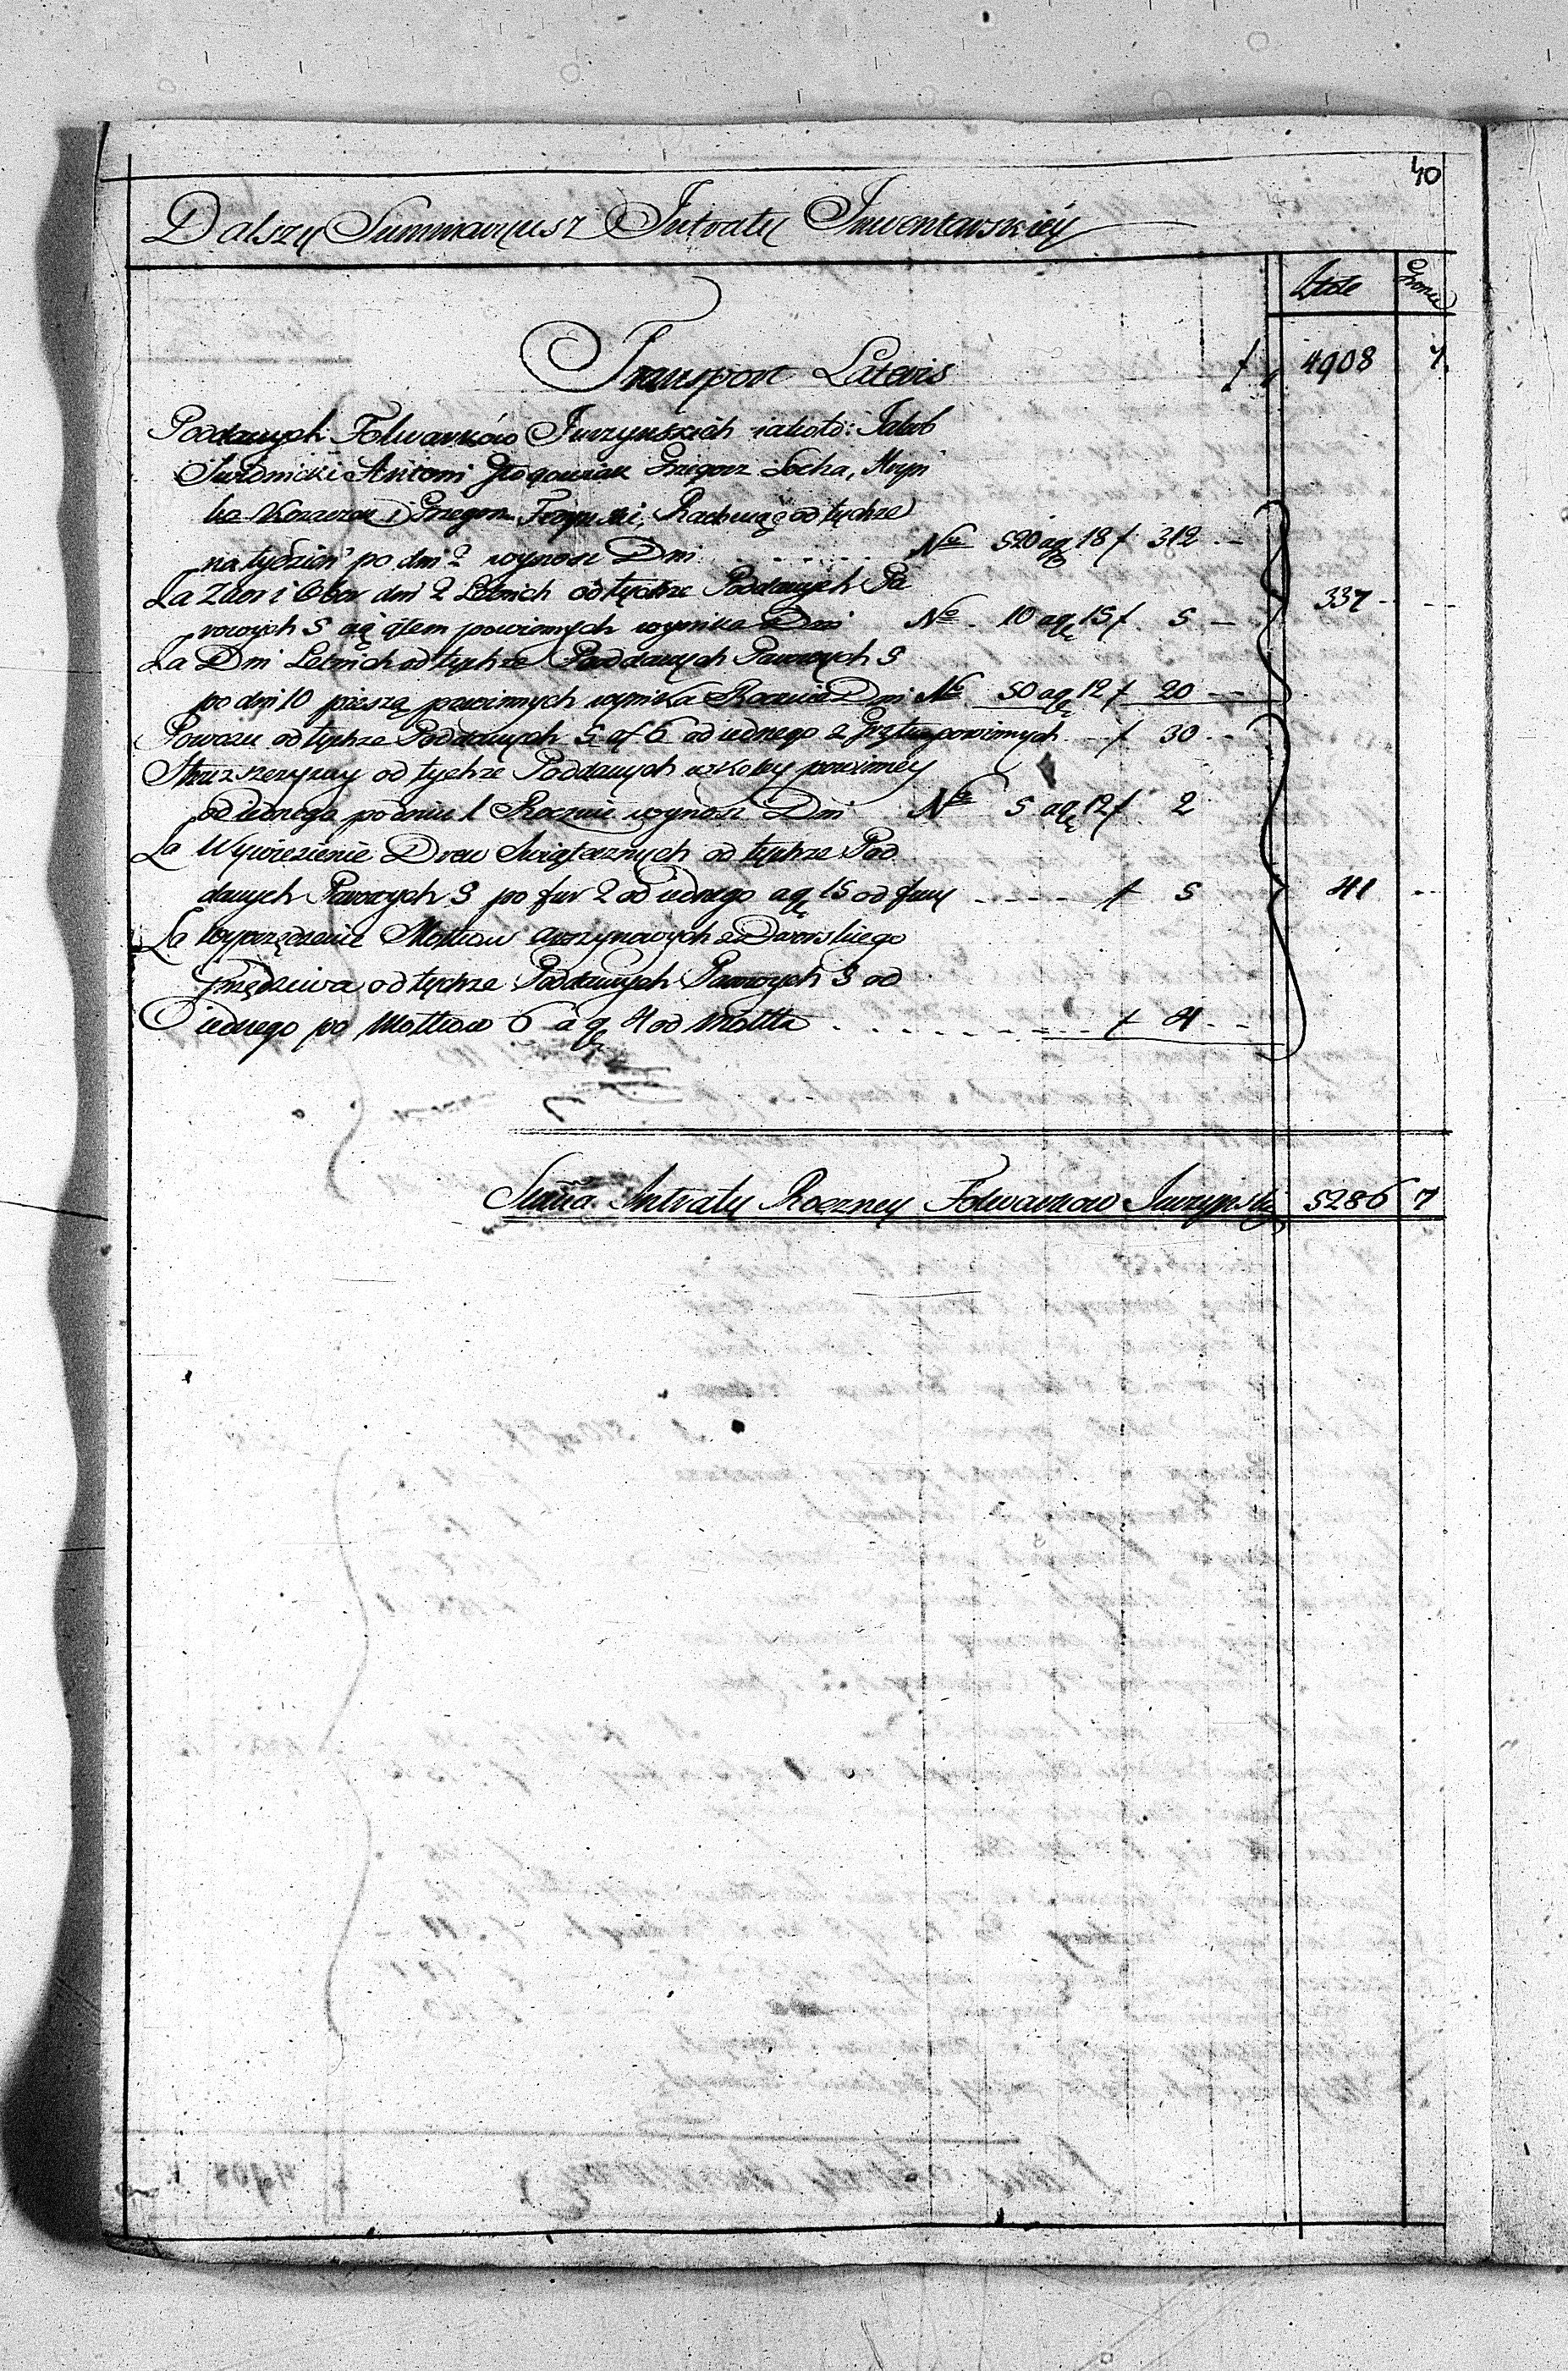 40
Dalszy Summaryusz Intraty Inwentarskiéy
Złote Grosze
Transport Lateris f 4908 7
Poddanych Folwarków Jurzynskich iakoto: Jakób
Swidnicki Antoni Głogowiak Grzegorz Socha,
Kozaczek i Grzegorz Rachuiąc od tychże
na tydzień po dni 2 wynosi Dni Nro 520 a gr 18 f 312
Za Zaor i Obor dni 2 Letnich od tychże Poddanych Pa
rowych 5 ciągłem powinnych wynika Dni Nro 10 a gr 15 f 5 337
Za Dni Letnich od tychże Poddanych Parowych 5
po dni 10 pieszą powinnych wynika Rocznie Dni Nro 50 a gr 12 f 20
Powozu od tychże Poddanych 5 a f 6 od iednego powinnych f 30
Stróższczyzny od tychże Poddanych w koley powinney
od iednego po dniu 1 Rocznie wynosi Dni Nro 5 a gr 12 f 2
Za Wywiezienie Drew Swiątecznych od tychże Pod
danych Parowych 5 po fur 2 od iednego a gr 15 od fury f 5 41
Za wyprzędzenie Motkow arszynowych z Dworskiego
Przędziwa od tychże Poddanych Parowych 5 od
iednego po Motkow 6 a gr 4 od Motka f 4
Suma Intraty Roczney Folwarkow Jurzynski 5286 7